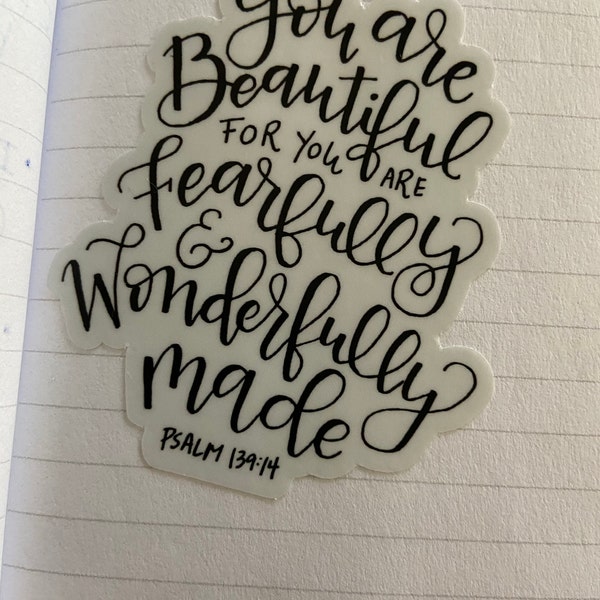 You are
Beautiful
FOR YOU ARE
fearfully
&
Wonderfully
made
PSALM 139:14